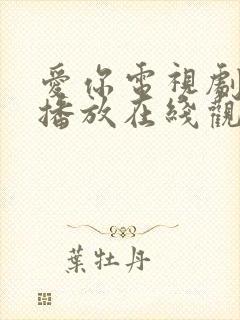 愛你電視劇
播放在綫觀
葉牡丹